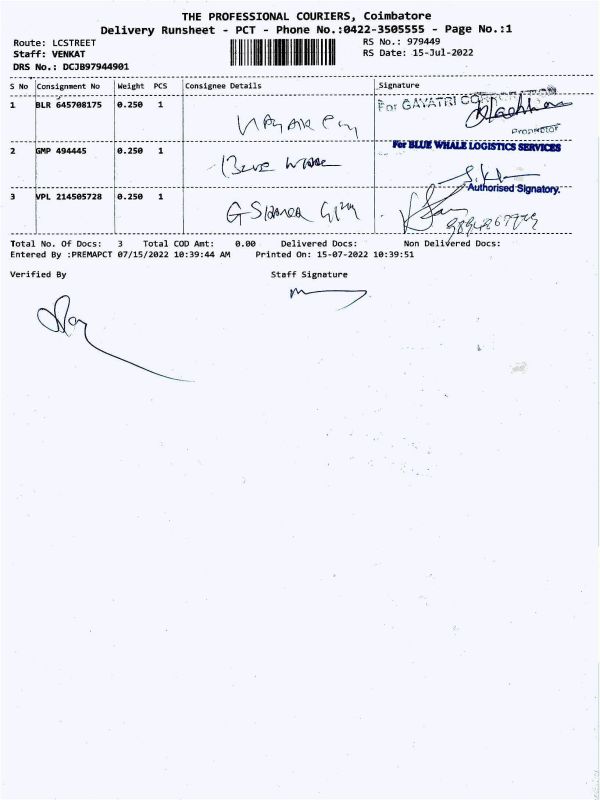 THE PROFESSIONAL COURIERS, Coimbatore
Delivery Runsheet - PCT - Phone No.:0422-3505555 - Page No.:1
Route: LCSTREET
Staff: VENKAT
DRS No.: DCJB97944901
RS No.: 979449
RS Date: 15-Jul-2022
S No Consignment No Weight PCS Consignee Details Signature
1 BLR 645708175 0.250 1
For GAYATRI CORPORATION
Proprietor
2 GMP 494445 0.250 1 Blue Whale
For BLUE WHALE LOGISTICS SERVICES
Authorised Signatory.
3 VPL 214505728 0.250 1
Total No. Of Docs: 3 Total COD Amt: 0.00 Delivered Docs: Non Delivered Docs:
Entered By :PREMAPCT 07/15/2022 10:39:44 AM Printed On: 15-07-2022 10:39:51
Verified By Staff Signature